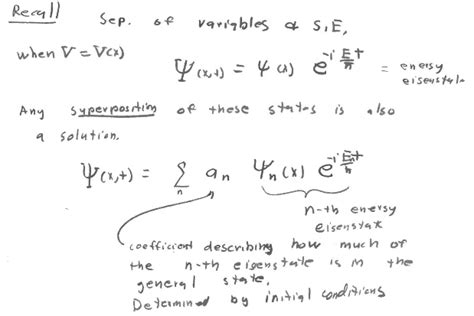 Recall Sep. of variables of S.E,
when V = V(x)
Ψ(x,t) = ψ(x) e^{-i Et/ħ} = energy eigenstate
Any superposition of these states is also
a solution.
Ψ(x,t) = Σ_n a_n ψ_n(x) e^{-i E_n t/ħ}
n-th energy
eigenstate
coefficient describing how much of
the n-th eigenstate is in the
general state.
Determined by initial conditions